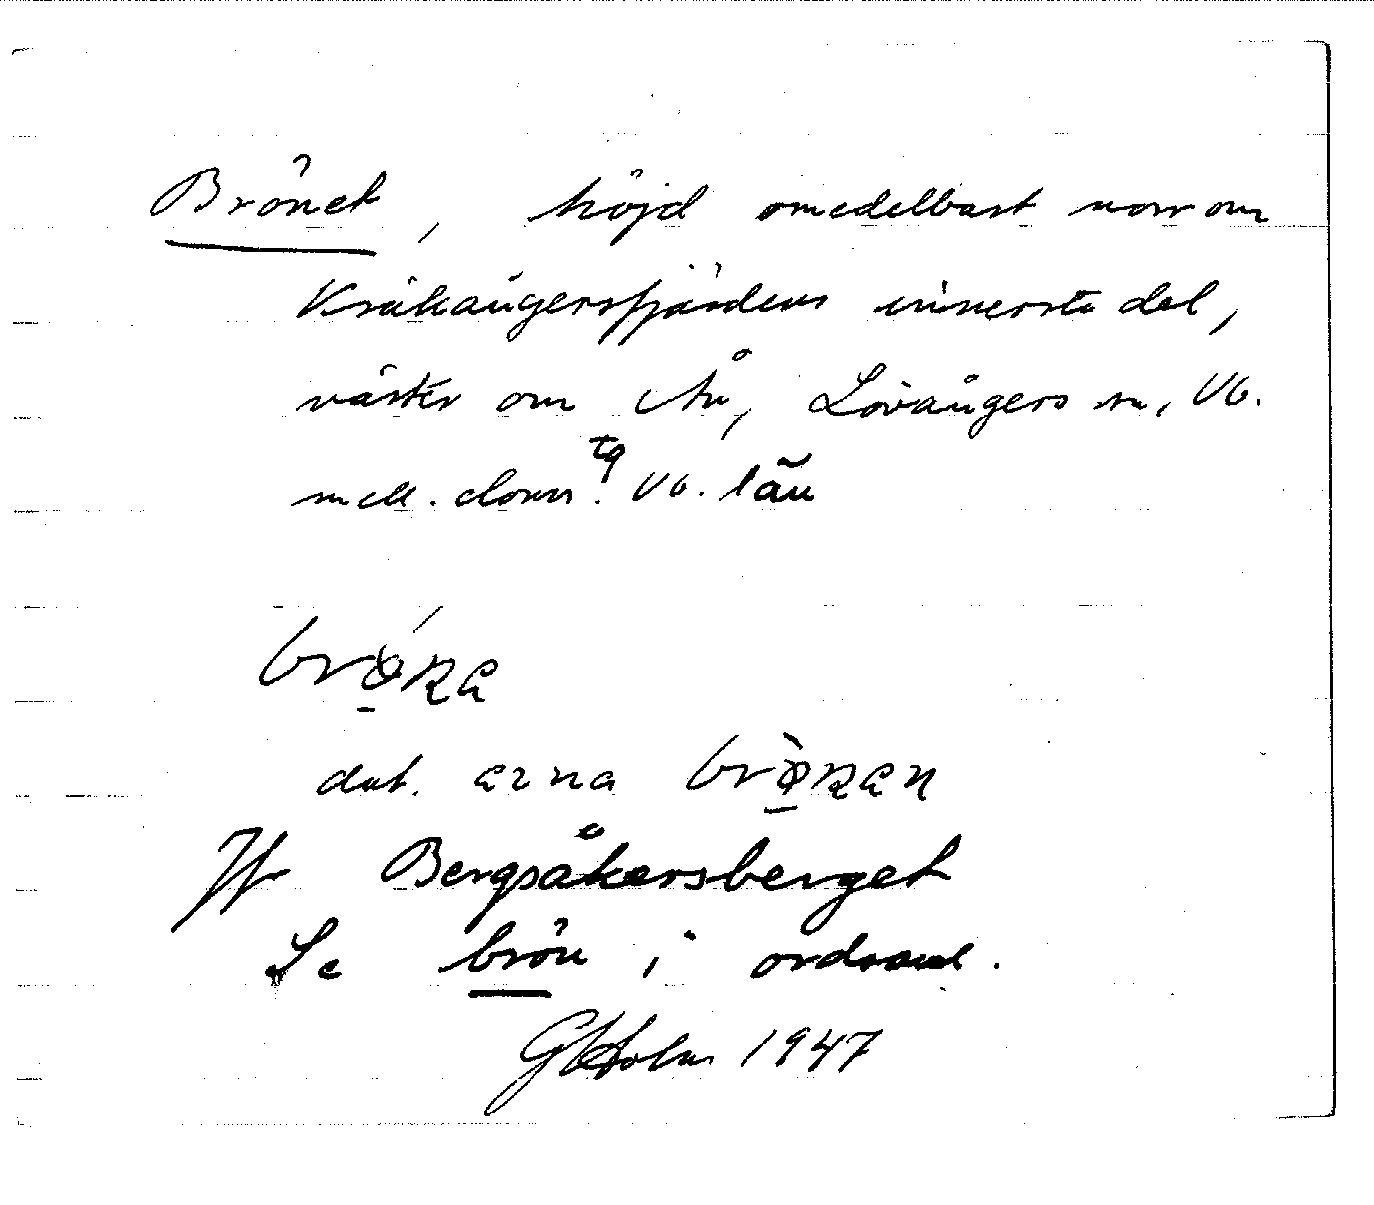 Brönet, höjd omedelbart norr om
Kräkångersfjärdens innersta del,
väster om Ån, Lövångers sn, Vb.
Vb. län
dat.
Jfr Bergsåkersberget
Se brön i ordsaml.
GHolm 1947